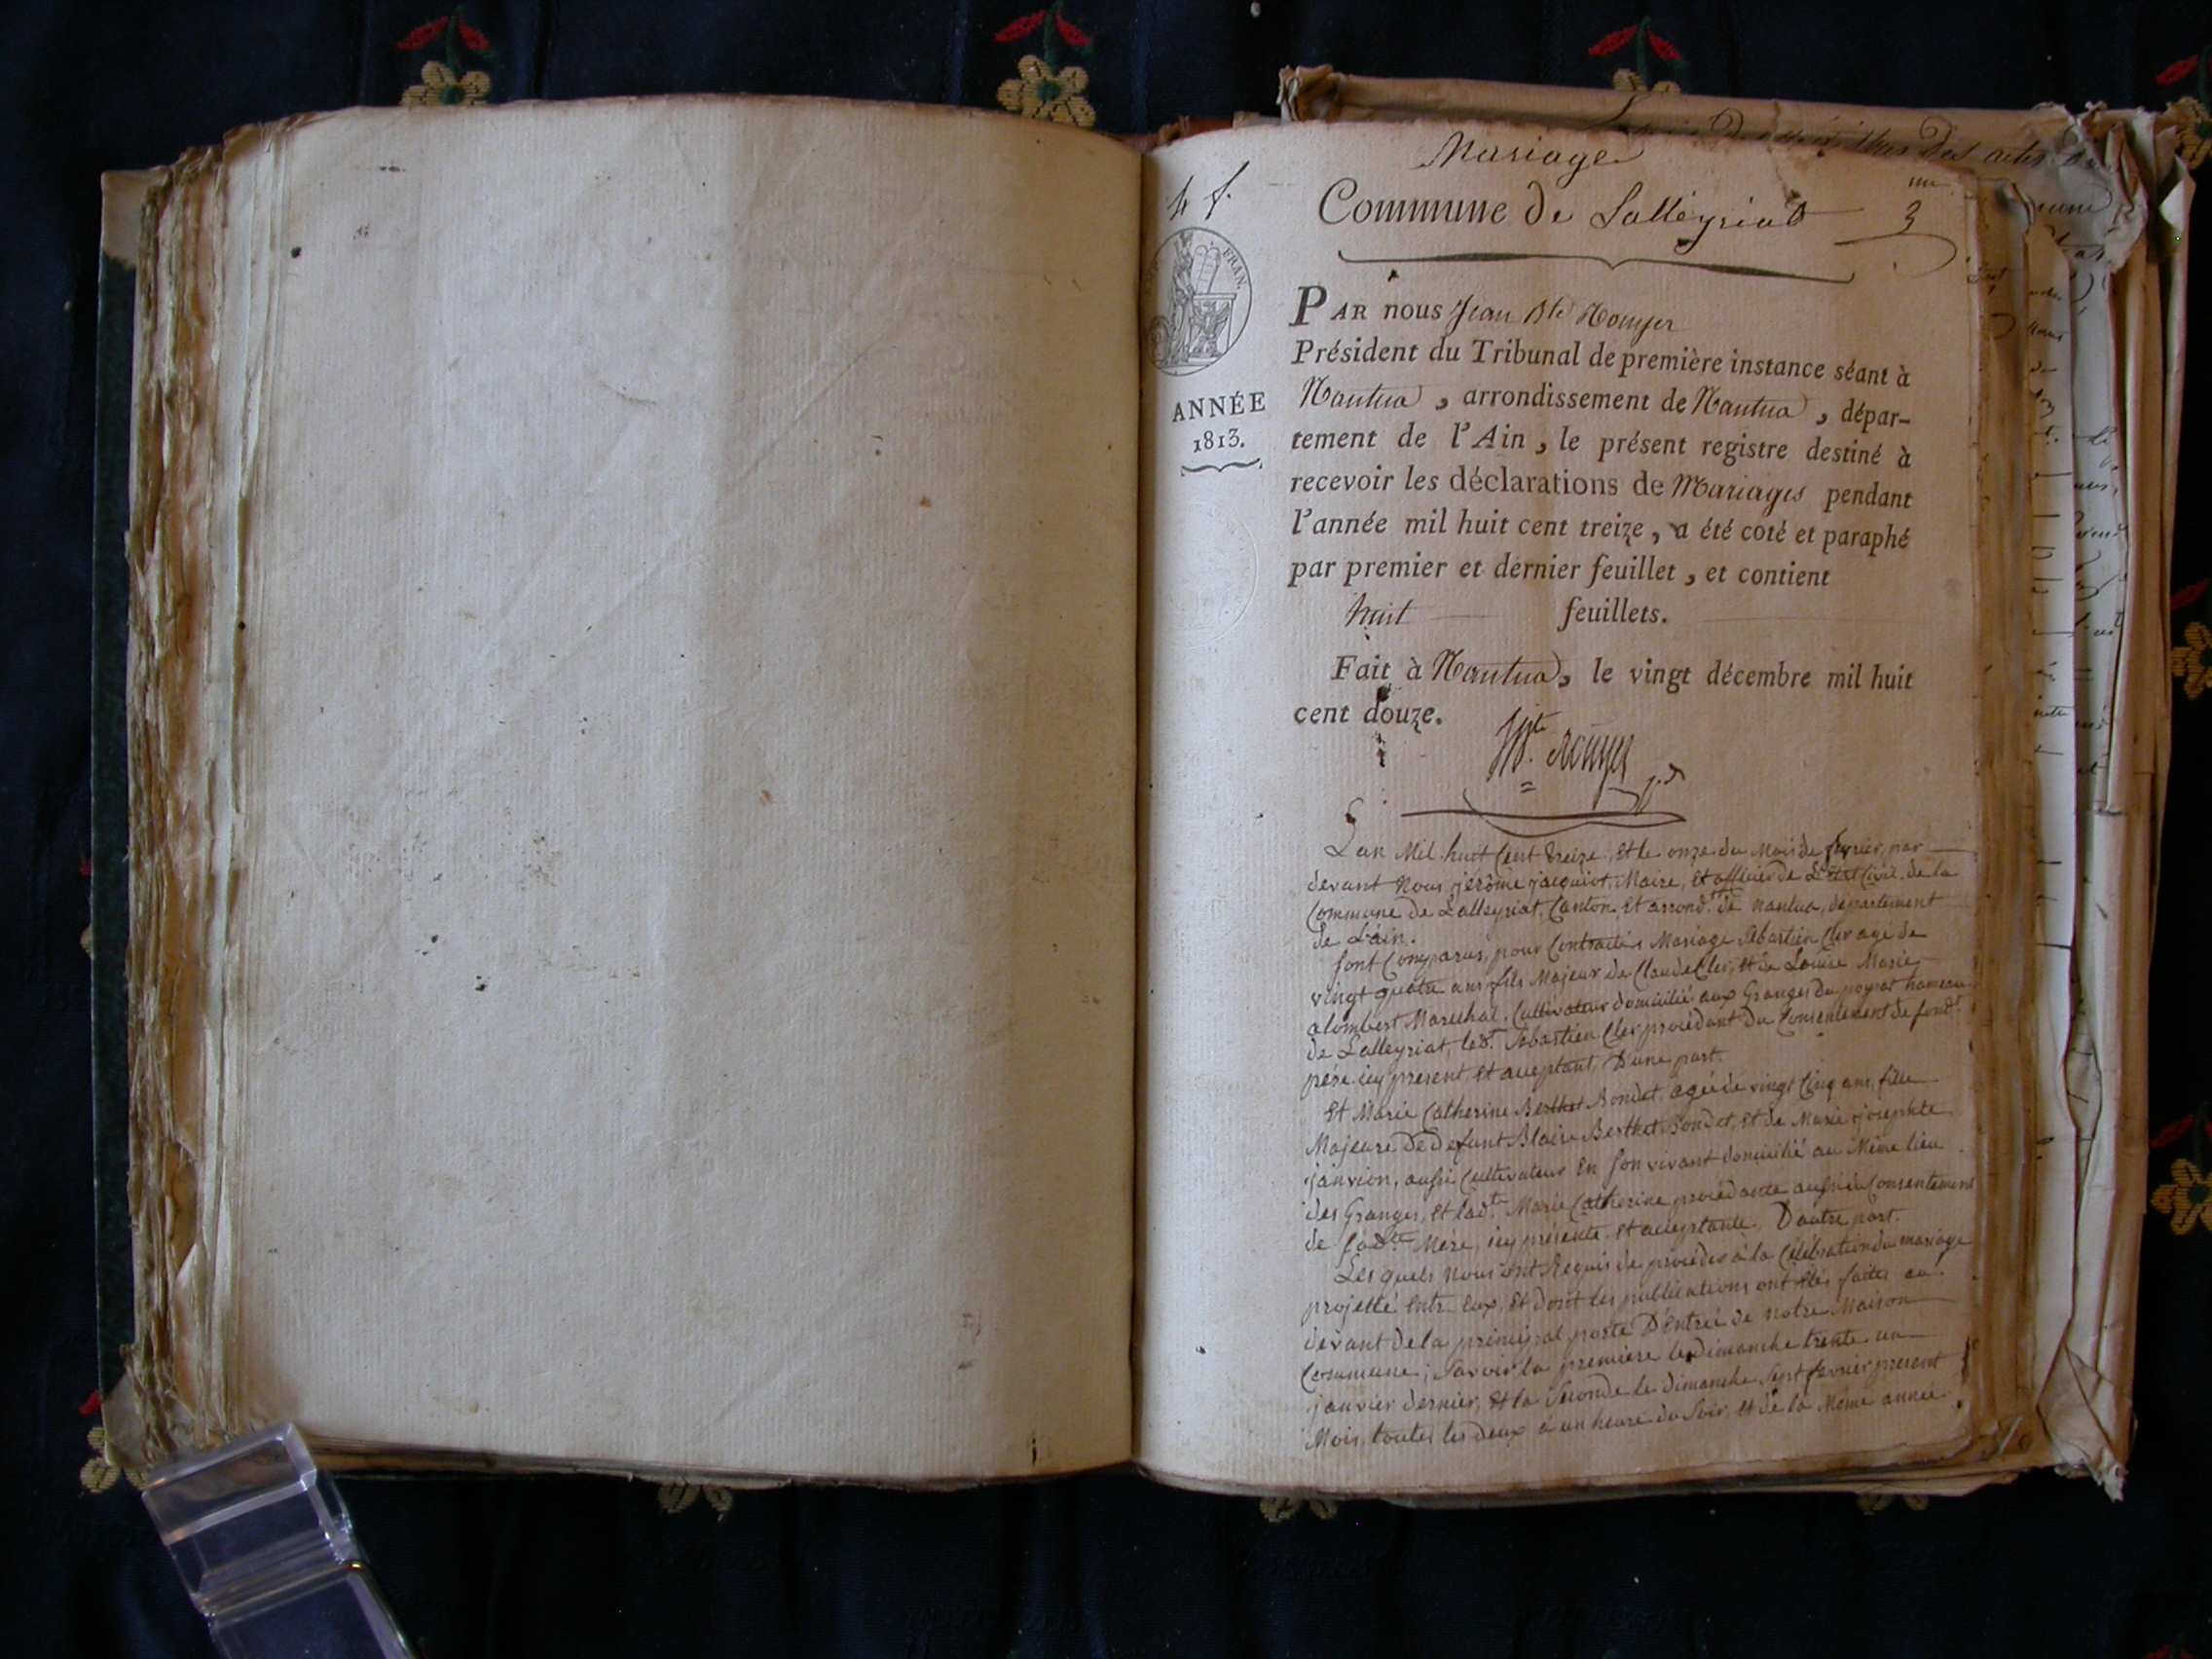 Mariage
4 f.
Commune de Lalleyriat
3
FRAN.
PAR nous Jean Bte Rouyer
Président du Tribunal de première instance séant à
Nantua, arrondissement de Nantua, dépar-
tement de l'Ain, le présent registre destiné à
recevoir les déclarations de Mariages pendant
l'année mil huit cent treize, a été coté et paraphé
par premier et dernier feuillet, et contient
huit feuillets.
ANNÉE
1813.
Fait à Nantua, le vingt décembre mil huit
cent douze.
JBte Rouyer
L'an Mil huit Cent treize, et le onze du Mois de fevrier, par
devant Nous jerôme jacquiot, Maire, et officier de L'Etat Civil de la
Commune de Lalleyriat, Canton et arrond.t de nantua, departement
de L'ain.
Sont Comparus, pour Contracter Mariage Sebastien Cler agé de
vingt quatre ans fils Majeur de Claude Cler, et de Louise Marie
alombert Marechal, Cultivateur domicilié aux Granges du poysat hameau
de Lalleyriat, led.t Sebastien Cler procédant du Consentement de sond.t
père icy present et acceptant, D'une part.
Et Marie Catherine Berthet Bondet, agée de vingt Cinq ans, fille
Majeure De Defunt Blaise Berthet Bondet, et de Marie josephte
janvion, aussi Cultivateur En son vivant domicilié au Même lieu
des Granges, et lad.te Marie Catherine procédante aussi du Consentement
de sad.te Mere, icy présente et acceptante, D'autre part.
Les quels Nous ont Requis de proceder à la Célébration du mariage
projetté entre eux, et dont les publications ont étés faites au
devant de la principal porte D'Entrée de notre Maison
Commune; Savoir la premiere le dimanche trente un
janvier dernier, et la Seconde le dimanche Sept fevrier present
Mois, toutes les deux à un heure du Soir, et de la Même année